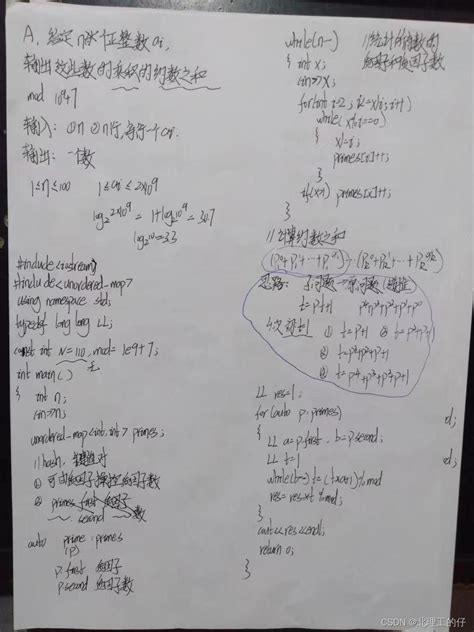 A. 给定n个正整数ai,
输出这些数的乘积的约数之和
mod 10^9+7
输入: ①n ②n行,每行一个ai.
输出: 一个数
1≤n≤100 1≤ai≤2×10^9
log₂2×10^9 = 1+log₂10^9 = 30.7
log₂10=3.3
#include<iostream>
#include<unordered_map>
using namespace std;
typedef long long LL;
const int N=110, mod=1e9+7;
int main()
{ int n;
cin>>n;
unordered_map<int,int> primes;
//hash,
①可由质因子操控质因子数
② primes.first 质因子
second 数
auto prime: primes
(p)
p.first 质因子
p.second 质因子数
while(n--) //统计
{ int x; 质因子和质因子数
cin>>x;
for(int i=2; i<=x/i; i++)
while(x%i==0)
{
x/=i;
primes[i]++;
}
if(x>1) primes[x]++;
}
//计算约数之和
(p₁^0+p₁^1+…+p₁^a1)…(pk^0+pk^1+…+pk^ak)
思路:
t=p·t+1 p^3+p^2+p^1+p^0
① t=p+1 ② t=p^2+p+1
③ t=p^3+p^2+p+1
④ t=p^4+p^3+p^2+p+1
LL res=1;
for(auto p: primes)
{
LL a=p.first, b=p.second;
LL t=1
while(b--) t=(t*a+1)%mod
res=res*t%mod;
}
cout<<res<<endl;
return 0;
}
CSDN @北理工的仔